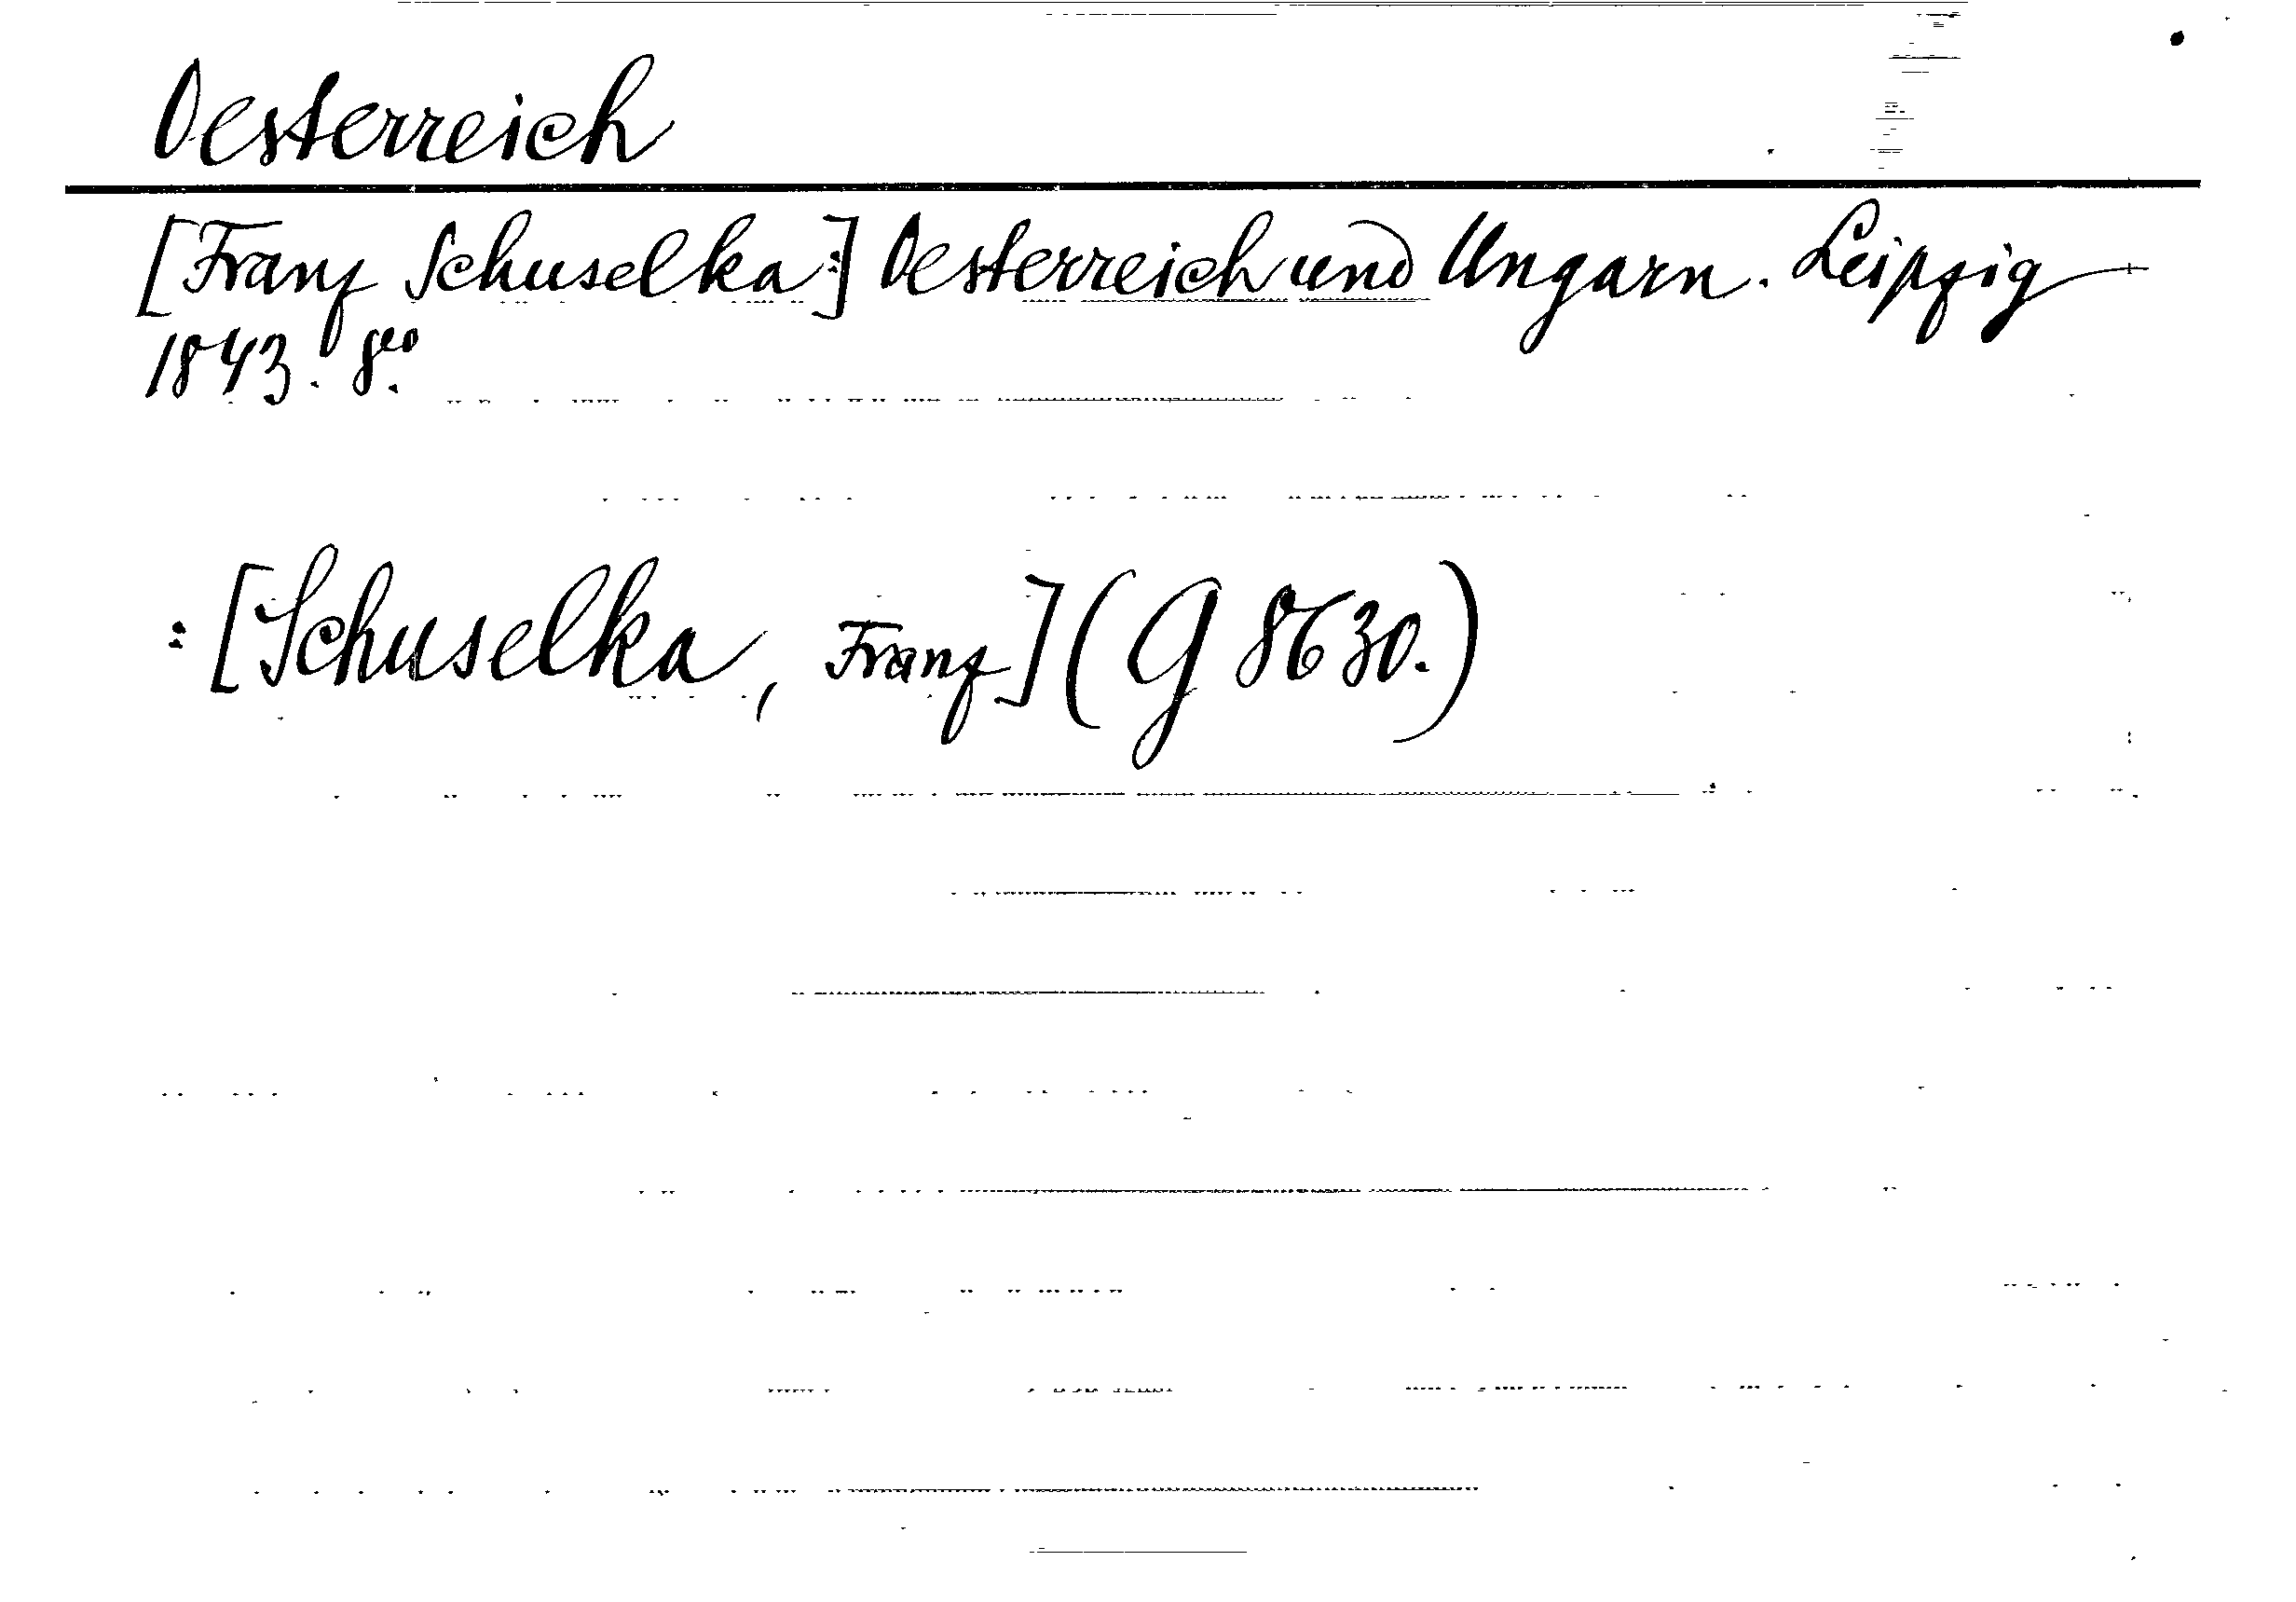 Oesterreich
[Franz Schuselka:] Oesterreich und Ungarn. Leipzig
1843. 8vo.
: [Schuselka, Franz] (G 8630.)